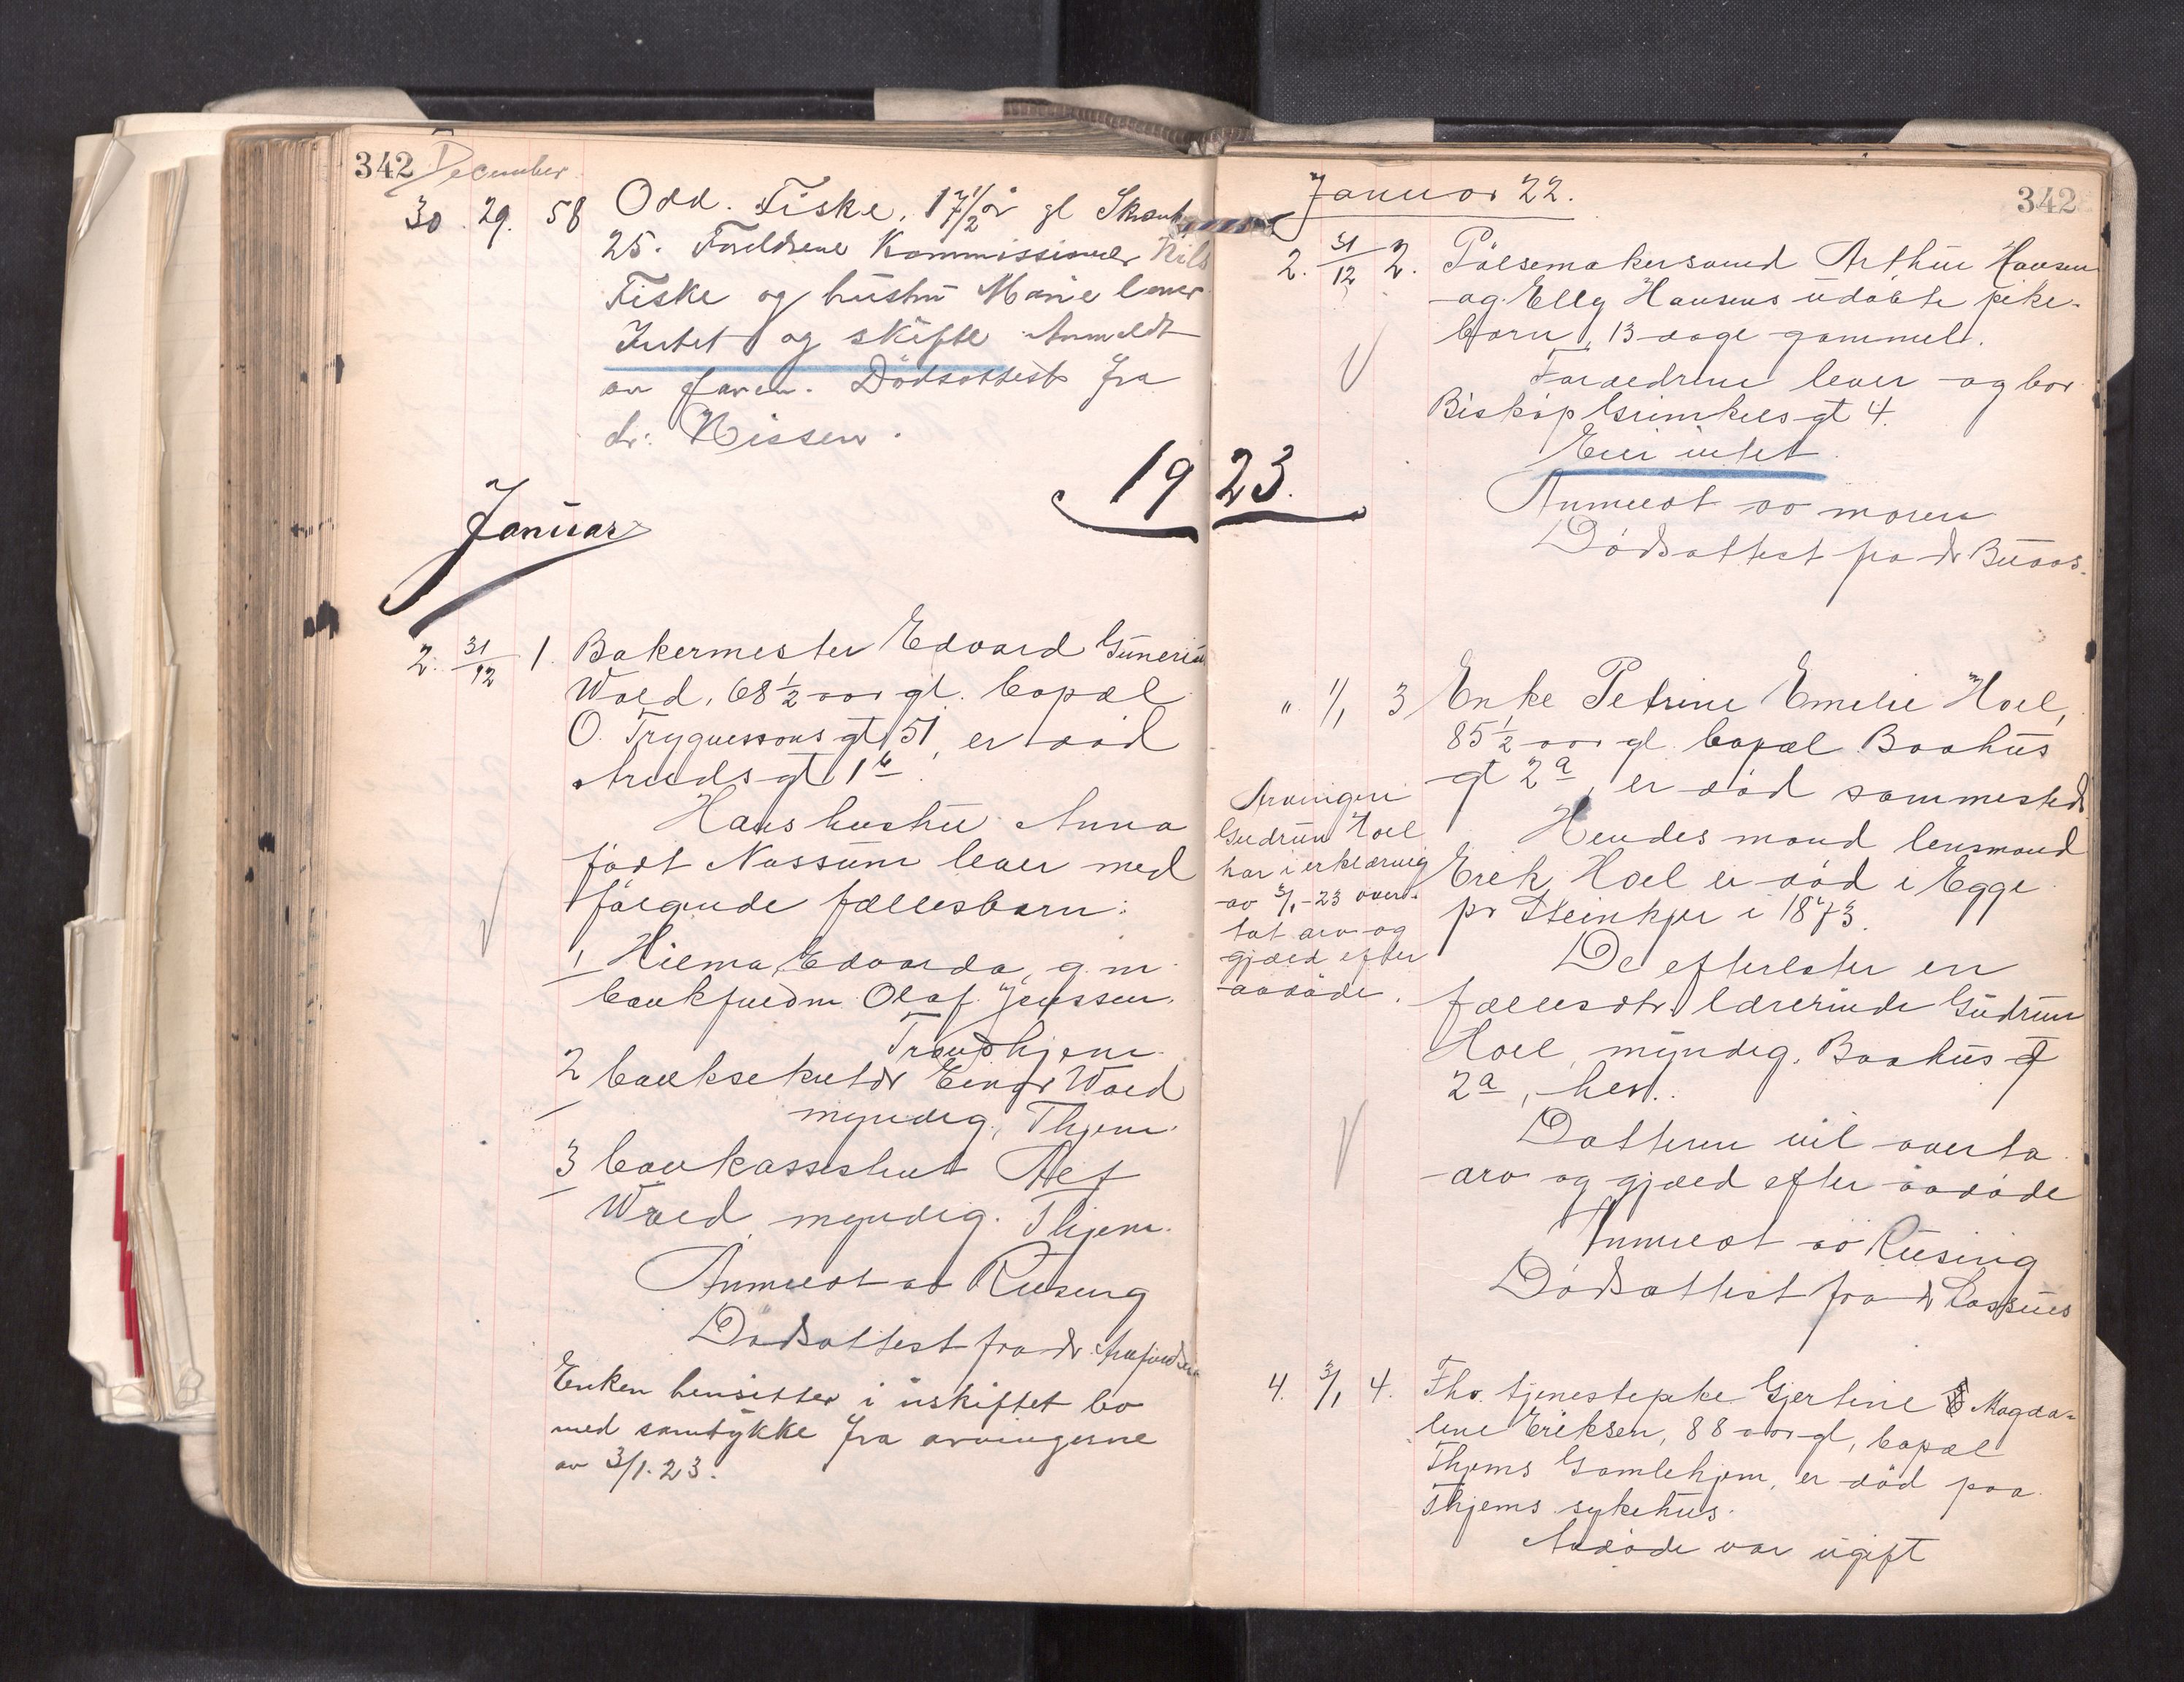 342 December
30. 29. 58 Odd. Fiske, 17 1/2 år gl
25. Foreldrene Kommissioner Nils
Fiske og hustru Marie lever
Intet og skifte Anmeldt
av faren. Dödsattest fra
dr. Nissen.
Januar
1923.
2. 31/12 1. Bakermester Edvard Guneriu
Wold, 68 1/2 aar gl. bopæl
O. Trygvessons gt 51, er död
Arilds gt 1 b.
Hans hustru Anna
födt Nossum lever med
fölgende fællesbarn:
1 Hilma Edvarda, g. m.
bankfuldm. Olaf Jenssen.
Trondhjem.
2 banksekretær Einar Wold
myndig, Thjem.
3 bankassistent Alf
Wold myndig. Thjem.
Anmeldt av Riising
Dødsattest fra dr.
Enken hensitter i uskiftet bo
med samtykke fra arvingerne
av 3/1. 23.
Januar 22.
342
2. 31/12 2. Pölsemakersvend Arthur Hansen
og Elly Hansens udöbte pike-
barn, 13 dage gammel.
Forældrene lever og bor
Biskop Grimkels gt 4.
Eier intet.
Anmeldt av moren
Dödsattest fra dr Buaas.
" 1/1 3 Enke Petrine Emelie Hoel,
85 1/2 aar gl. bopæl Baahus
gt 2a, er död sammesteds
Hendes mand lensmand
Erek Hoel er död i Egge
pr Steinkjer i 1873.
De efterlater en
fællesdtr. lærerinde Gudrun
Hoel, myndig. Baahus gt
2a, her.
Datteren vil overta
arv og gjæld efter avdöde
Anmeldt av Riising
Dödsattest fra dr Lossius
Arvingen
Gudrun Hoel
har i erklæring
av 3/1-23 over-
tat arv og
gjæld efter
avdöde.
4. 3/1 4. Fhv. tjenestepike Gjertine Magda-
lene Eriksen, 88 aar gl, bopæl
Thjems Gamlehjem, er död paa
Thjems sykehus.
Avdöde var ugift